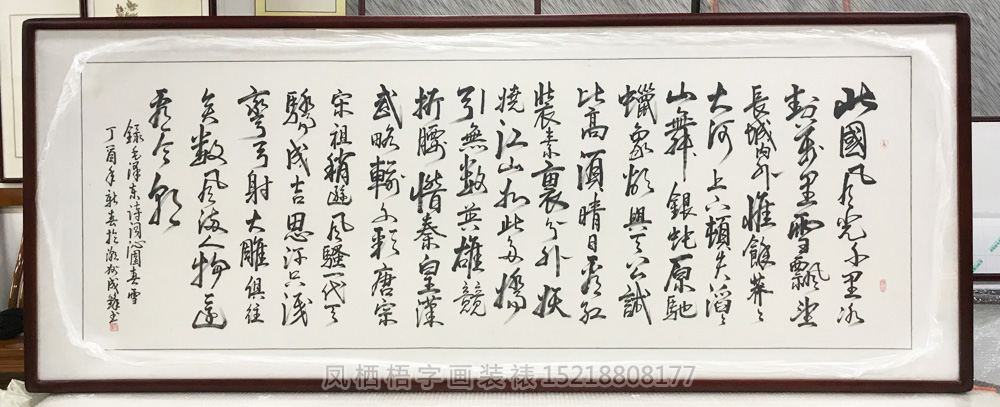 北國風光千里冰
封萬里雪飄望
長城內外惟餘莽々
大河上下頓失滔々
山舞銀蛇原馳
蠟象欲與天公試
比高須晴日看紅
裝素裹分外妖
嬈江山如此多嬌
引無數英雄競
折腰惜秦皇漢
武略輸文彩唐宗
宋祖稍遜風騷一代天
驕成吉思汗只識
彎弓射大雕俱往
矣數風流人物還
看今朝
錄毛澤東詩詞沁園春雪
丁酉年新春於
凤栖梧字画装裱15218808177